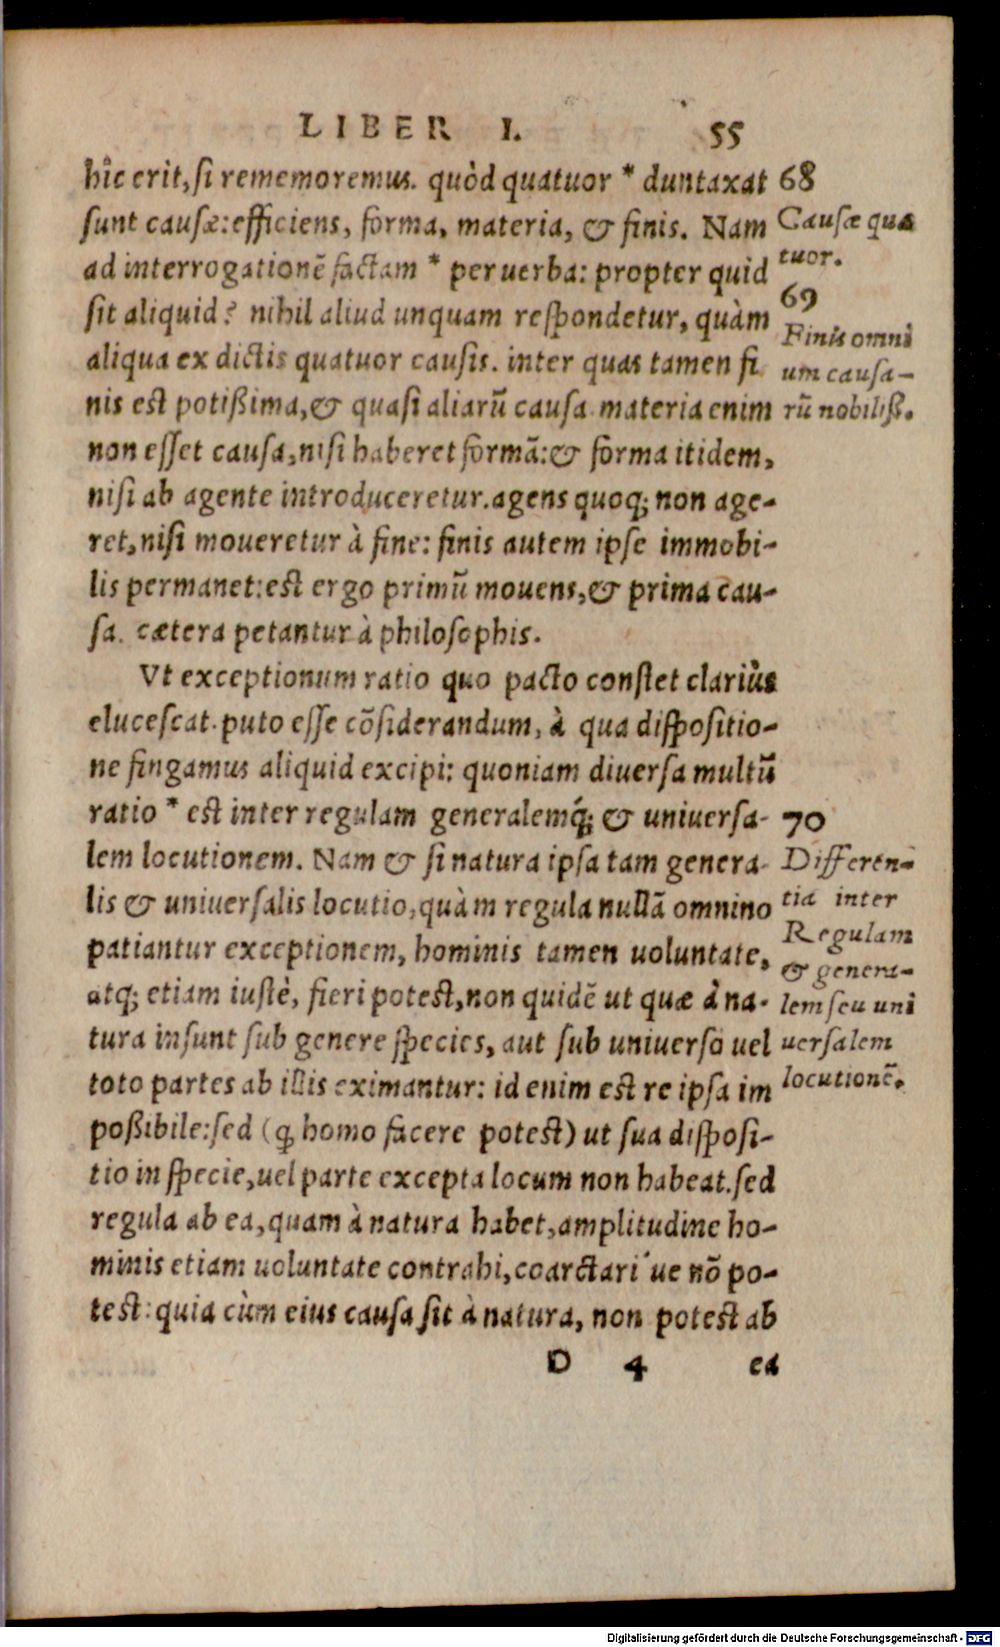 LIBER I. 55
hîc erit, si rememoremus. quòd quatuor * duntaxat
sunt causæ: efficiens, forma, materia, & finis. Nam
ad interrogationẽ factam * per uerba: propter quid
sit aliquid? nihil aliud unquam respondetur, quàm
aliqua ex dictis quatuor causis. inter quas tamen fi
nis est potißima, & quasi aliarũ causa. materia enim
non esset causa, nisi haberet formã: & forma itidem,
nisi ab agente introduceretur. agens quoq; non age-
ret, nisi moueretur à fine: finis autem ipse immobi-
lis permanet: est ergo primũ mouens, & prima cau-
sa. cætera petantur à philosophis.
Vt exceptionum ratio quo pacto constet clariùs
elucescat. puto esse cõsiderandum, à qua dispositio-
ne fingamus aliquid excipi: quoniam diuersa multũ
ratio * est inter regulam generalemq́; & uniuersa-
lem locutionem. Nam & si natura ipsa tam genera-
lis & uniuersalis locutio, quàm regula nullã omnino
patiantur exceptionem, hominis tamen uoluntate,
atq; etiam iustè, fieri potest, non quidẽ ut quæ à na-
tura insunt sub genere species, aut sub uniuerso uel
toto partes ab illis eximantur: id enim est re ipsa im
poßibile: sed (ꝙ homo facere potest) ut sua disposi-
tio in specie, uel parte excepta locum non habeat. sed
regula ab ea, quam à natura habet, amplitudine ho-
minis etiam uoluntate contrahi, coarctari´ue nõ po-
test: quia cùm eius causa sit à natura, non potest ab
D 4 ea
68
Causæ qua
tuor.
69
Finis omni
um causa-
rũ nobiliß.
70
Differen-
tia inter
Regulam
& genera-
lem seu uni
uersalem
locutionẽ.
Digitalisierung gefördert durch die Deutsche Forschungsgemeinschaft - DFG